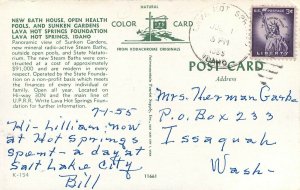 NEW BATH HOUSE, OPEN HEALTH
POOLS, AND SUNKEN GARDENS
LAVA HOT SPRINGS FOUNDATION
LAVA HOT SPRINGS, IDAHO
Panoramic view of Sunken Gardens,
new mineral radio-active Steam Baths,
outside open pools, and State Natato-
rium. The new Steam Baths were con-
structed at a cost of approximately
$91,000 and are modern in every
respect. Operated by the State Founda-
tion on a non-profit basis which means
the finest of everything for individual or
family. Open all year. Located on
Hi-way 30N and the main line of
U.P.R.R. Write Lava Hot Springs
Foundation for further information.
NATURAL
COLOR CARD
FROM KODACHROME ORIGINALS
3¢
LIBERTY
POST CARD
Address
7-1-55
Hi-Lillian now
at Hot Springs
spent a day at
Salt Lake City
Bill
Mrs. Herman
P.O. Box 233
Issaquah
Wash-
K-154
11661